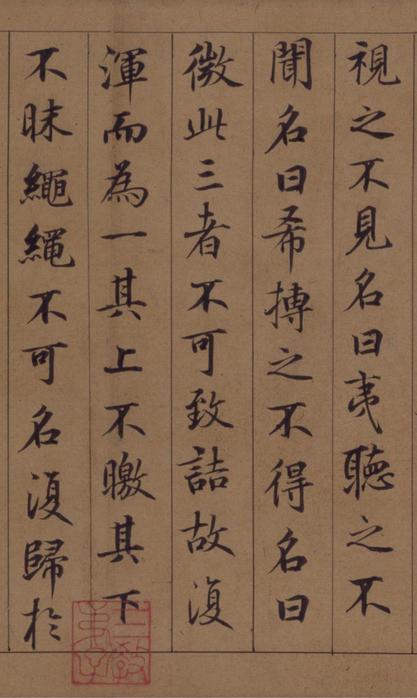 視之不見名曰夷聽之不
聞名曰希摶之不得名曰
微此三者不可致詰故復
渾而為一其上不皦其下
不昧繩繩不可名復歸於